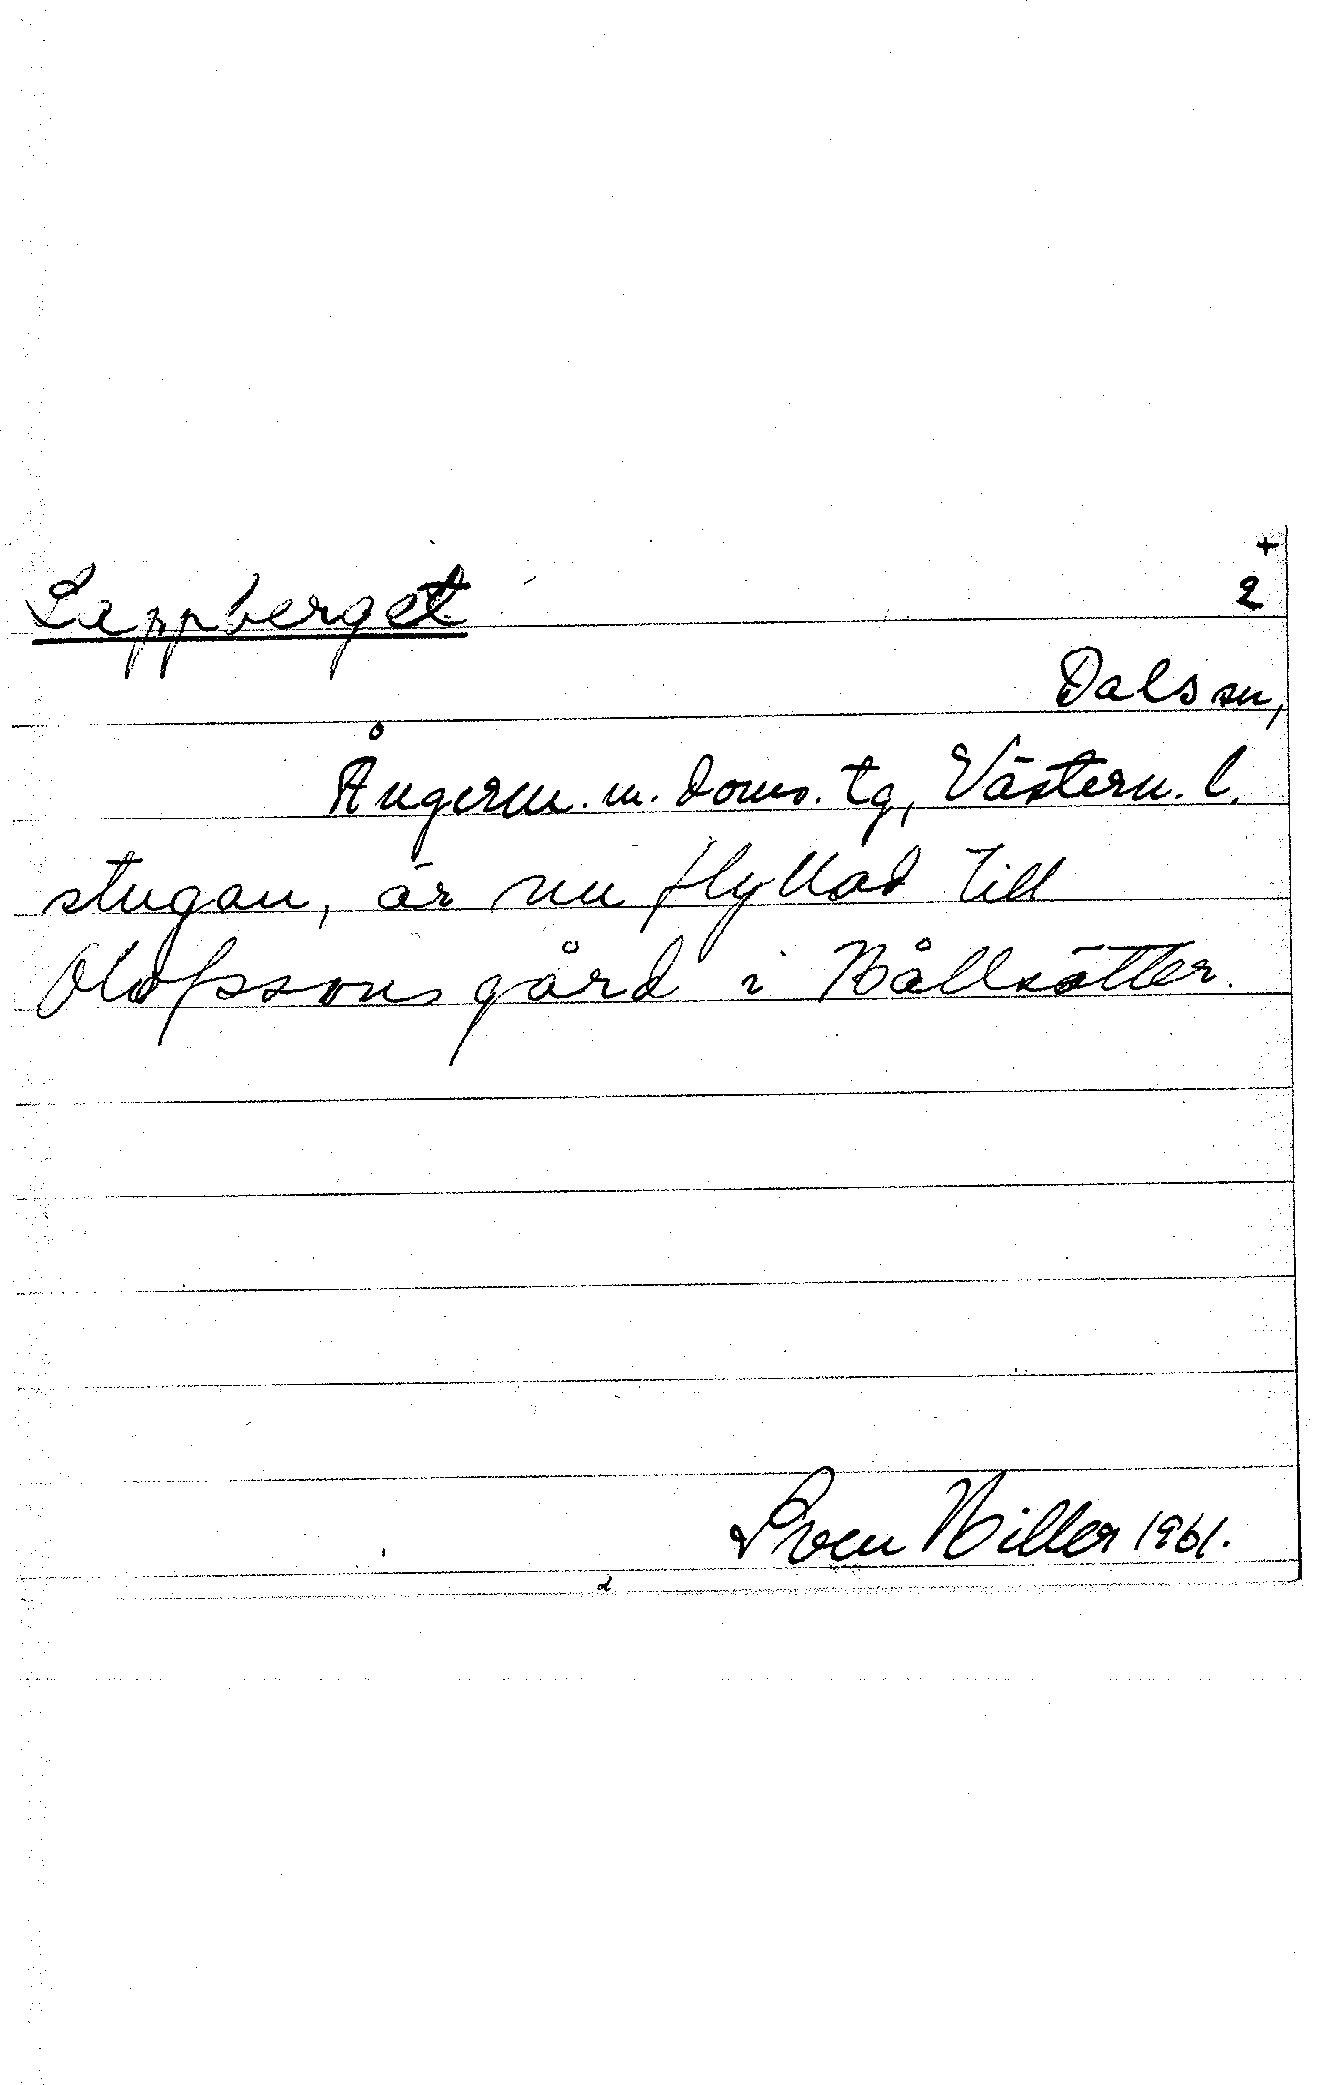 +
Lappberget 2
Dals sn,
Ångerm. m. doms. tg, Västern. l.
stugan, är nu flyttad till
Olofssons gård i Hållsätter.
Sven Hiller 1961.